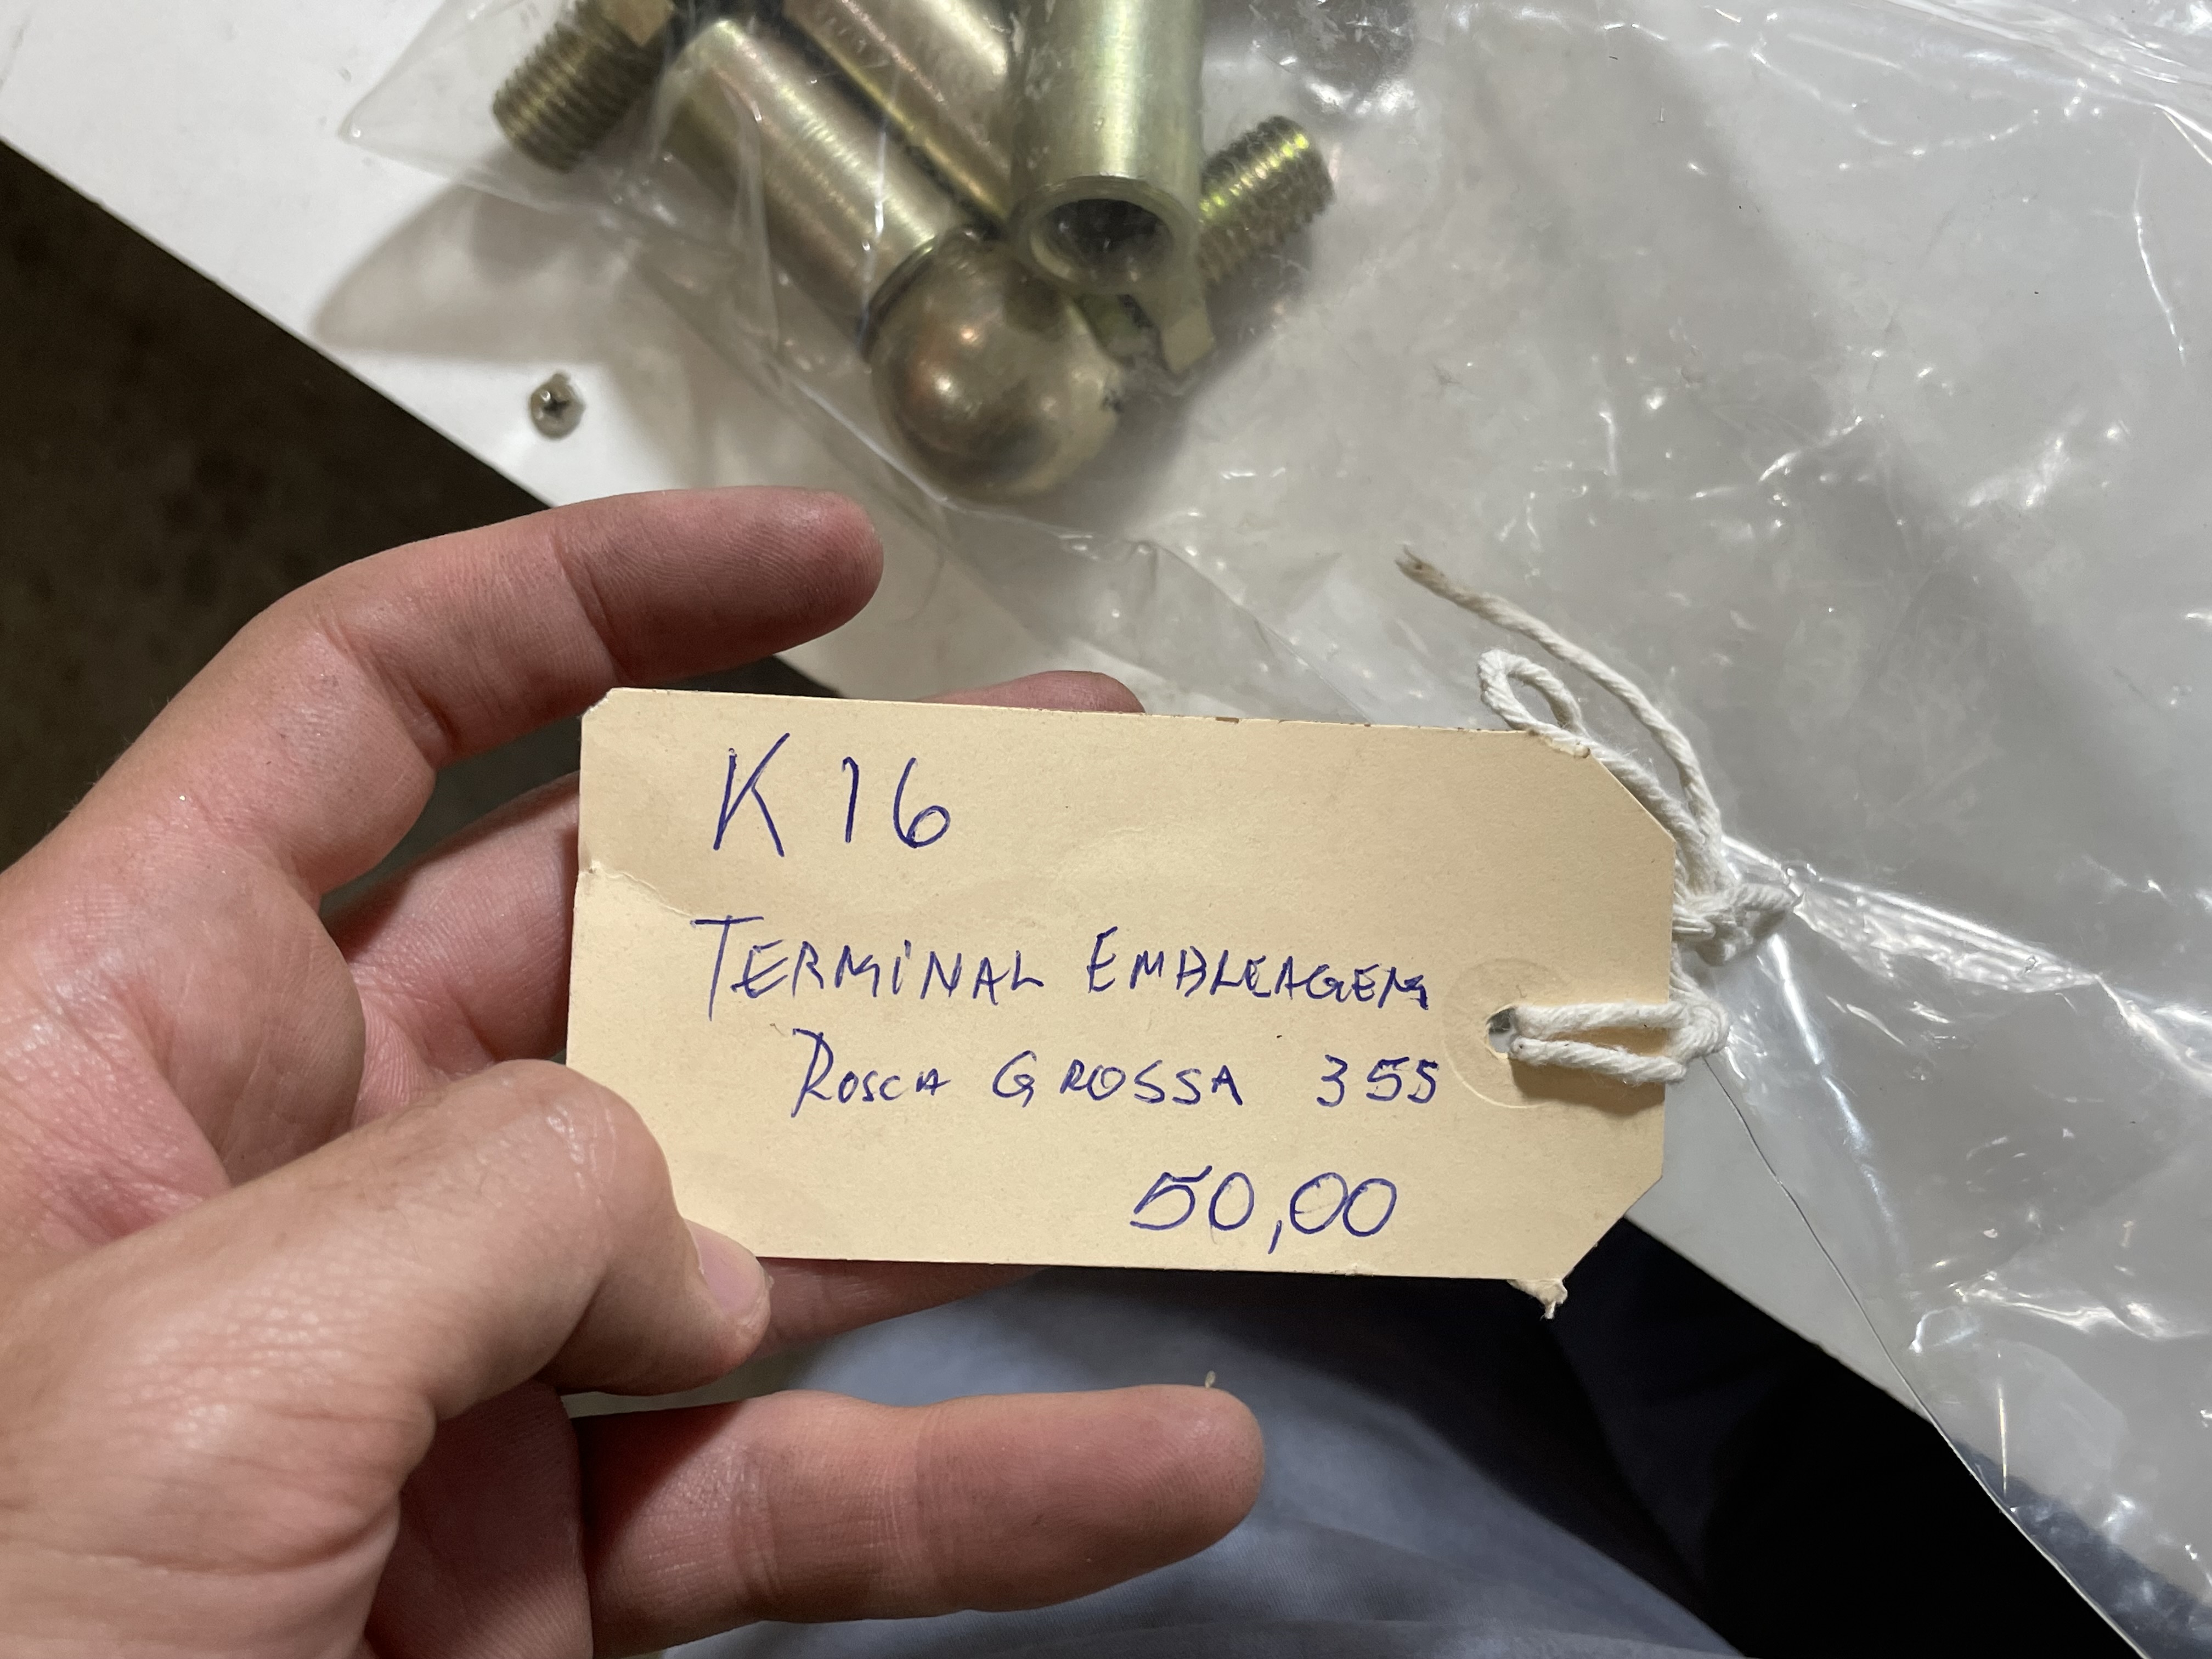 K 16
TERMiNAL EMBREAGEM
ROSCA GROSSA 355
50,00